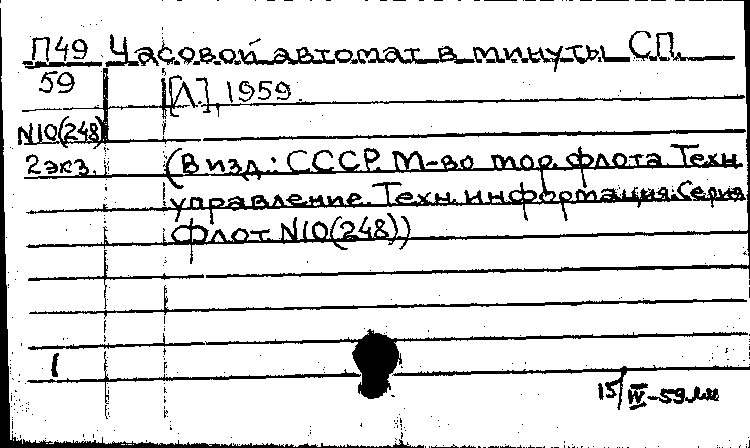 П49 Часовой автомат в минуты СП.
59 [Л.], 1959.
N10(248)
2экз. (В изд.: СССР. М-во мор. флота. Техн.
управление. Техн. информация. Серия
флот. N10(248))
1
15/IV-59